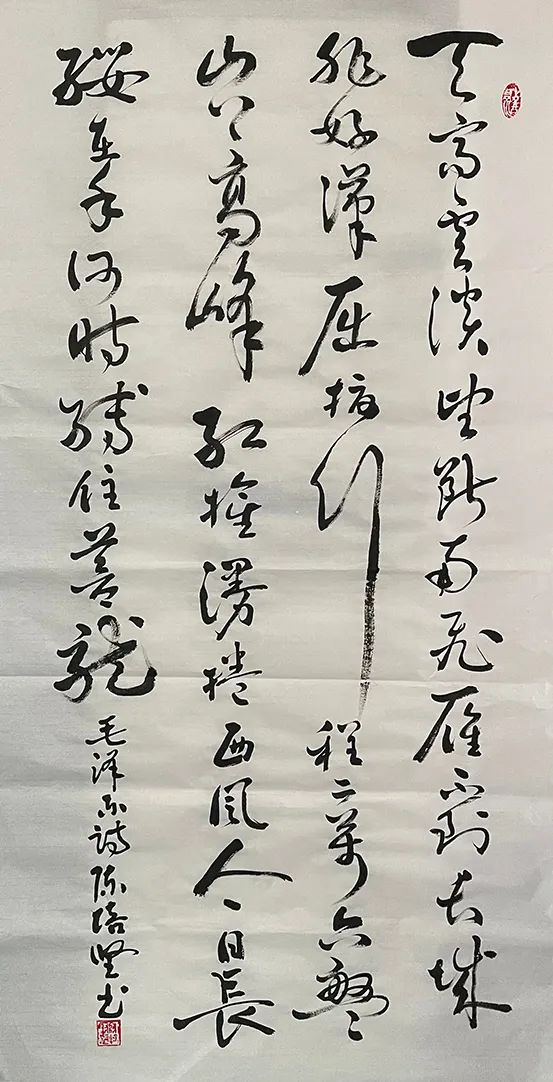 天高雲淡望斷南飛雁不到長城
非好漢屈指行程二萬六盤
山上高峰紅旗漫捲西風今日長
纓在手何時縛住蒼龍
毛澤東詩陳培堅書